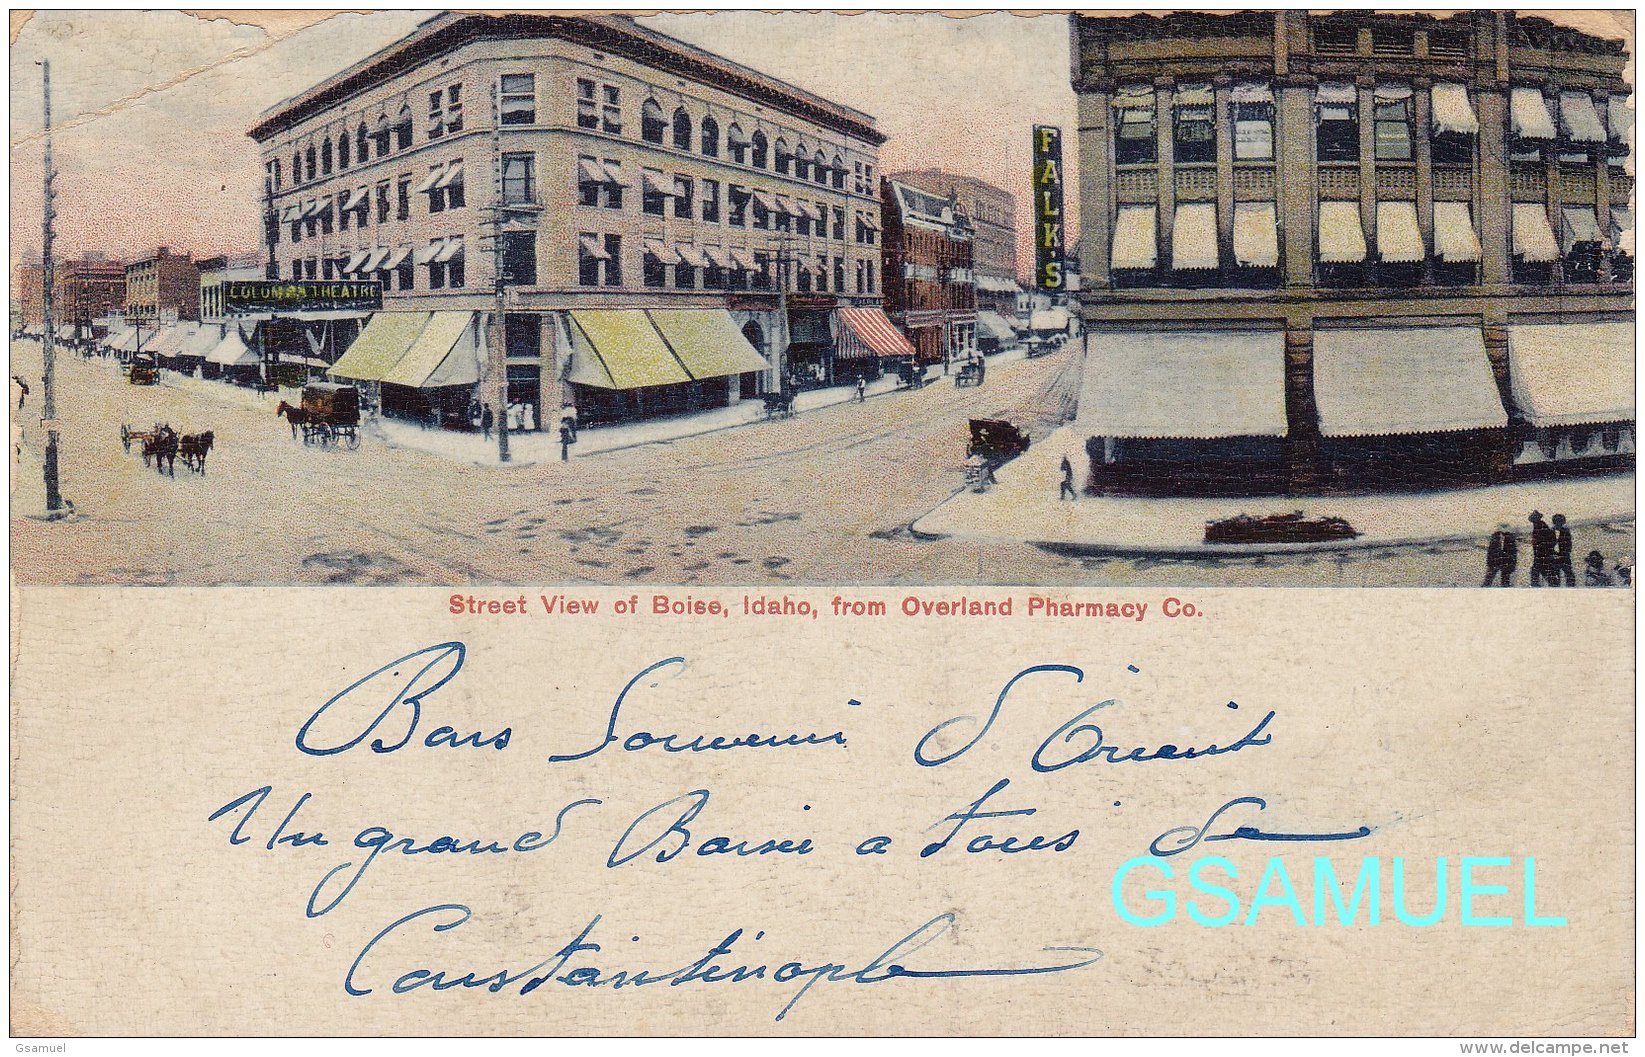 COLUMBIA THEATRE
FALK'S
Street View of Boise, Idaho, from Overland Pharmacy Co.
Bons Souvenir d'Orient
Un grand Baiser a tous de
Constantinople
GSAMUEL
Gsamuel
delcampe.net